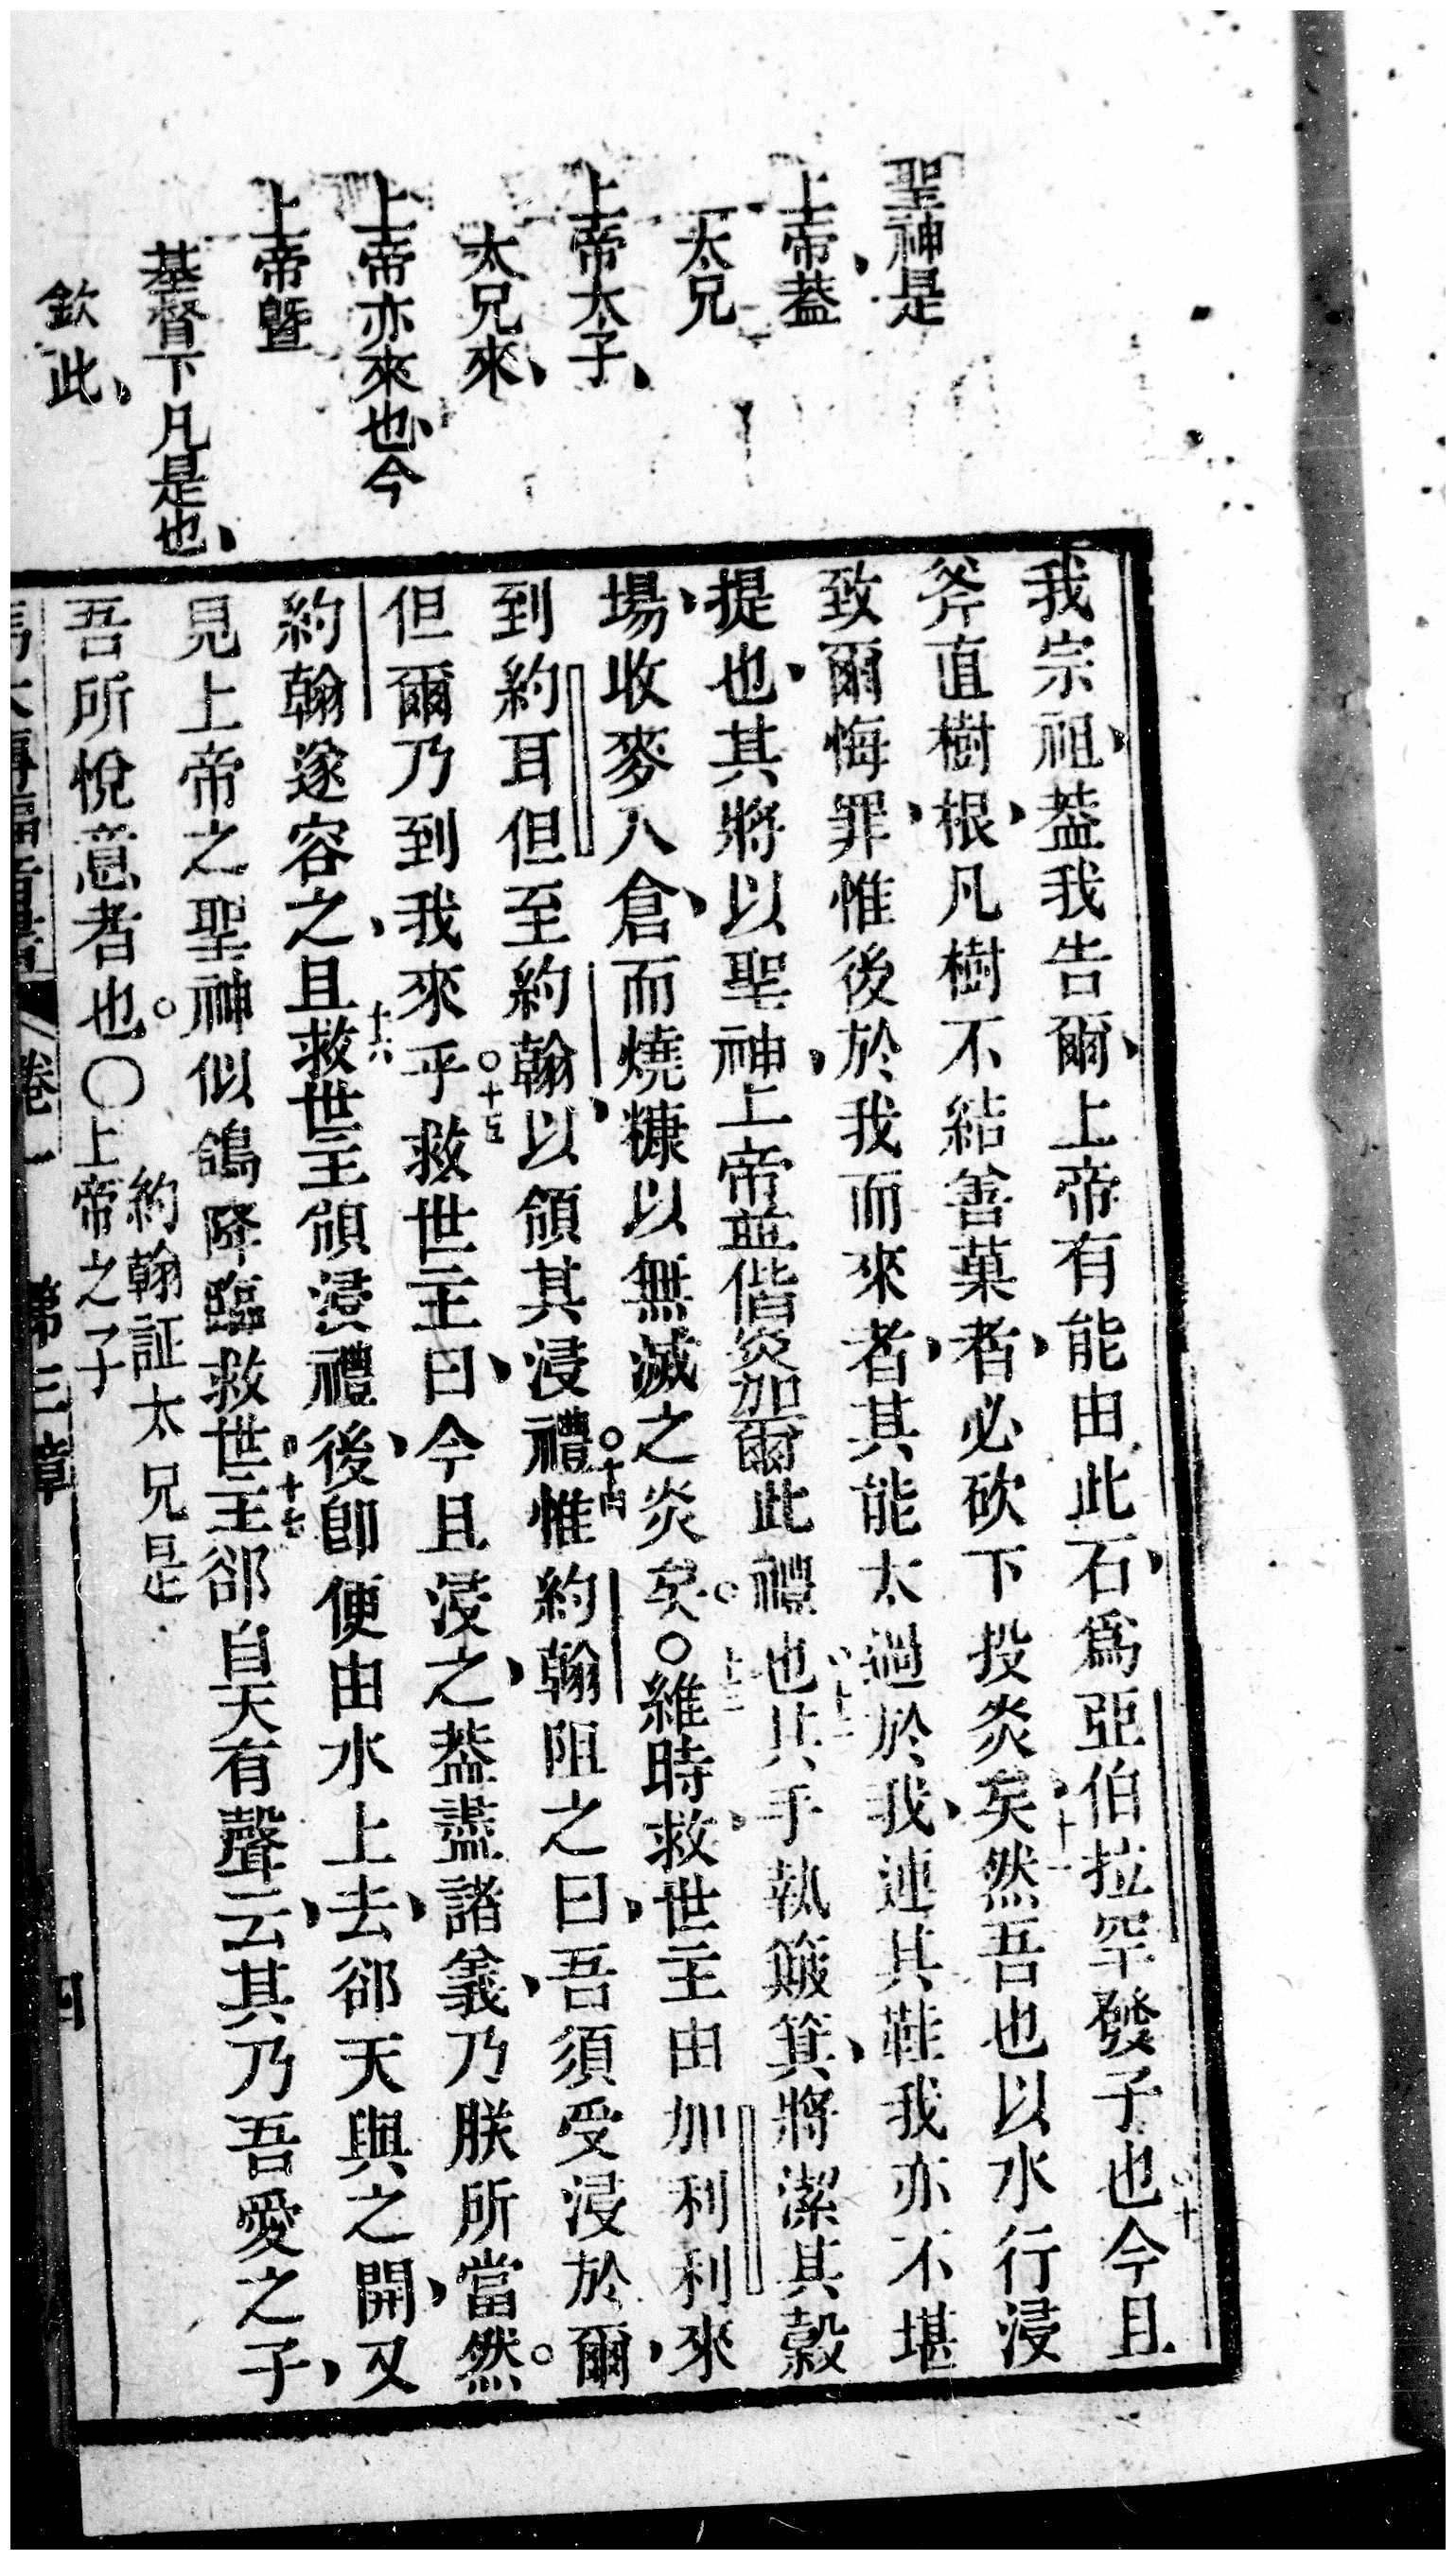 聖神是
上帝、蓋
太兄
上帝太子、
太兄來、
上帝亦來也、今
上帝曁
基督下凡是也、
欽此、
我宗祖、蓋我告爾、上帝有能由此石、爲亞伯拉罕發子也○十今且
斧直樹根、凡樹不結善菓者、必砍下投炎矣、十一然吾也以水行浸
致爾悔罪、惟後於我而來者、其能太過於我、連其鞋我亦不堪
提也、其將以聖神、上帝並偕炎加爾此禮也○十二其手執簸箕、將潔其穀
場、收麥入倉、而燒糠以無滅之炎矣。○十三維時、救世主由加利利來
到約耳但至約翰、以領其浸禮○十四惟約翰阻之曰、吾須受浸於爾、
但爾乃到我來乎○十五救世主曰、今且浸之、蓋盡諸義、乃朕所當然。
約翰遂容之、十六且救世主領浸禮後、卽便由水上去、郤天與之開、又
見上帝之聖神似鴿降臨救世主○十七郤自天有聲云、其乃吾愛之子、
吾所悅意者也。○約翰証太兄是
上帝之子
卷一
第三章
四